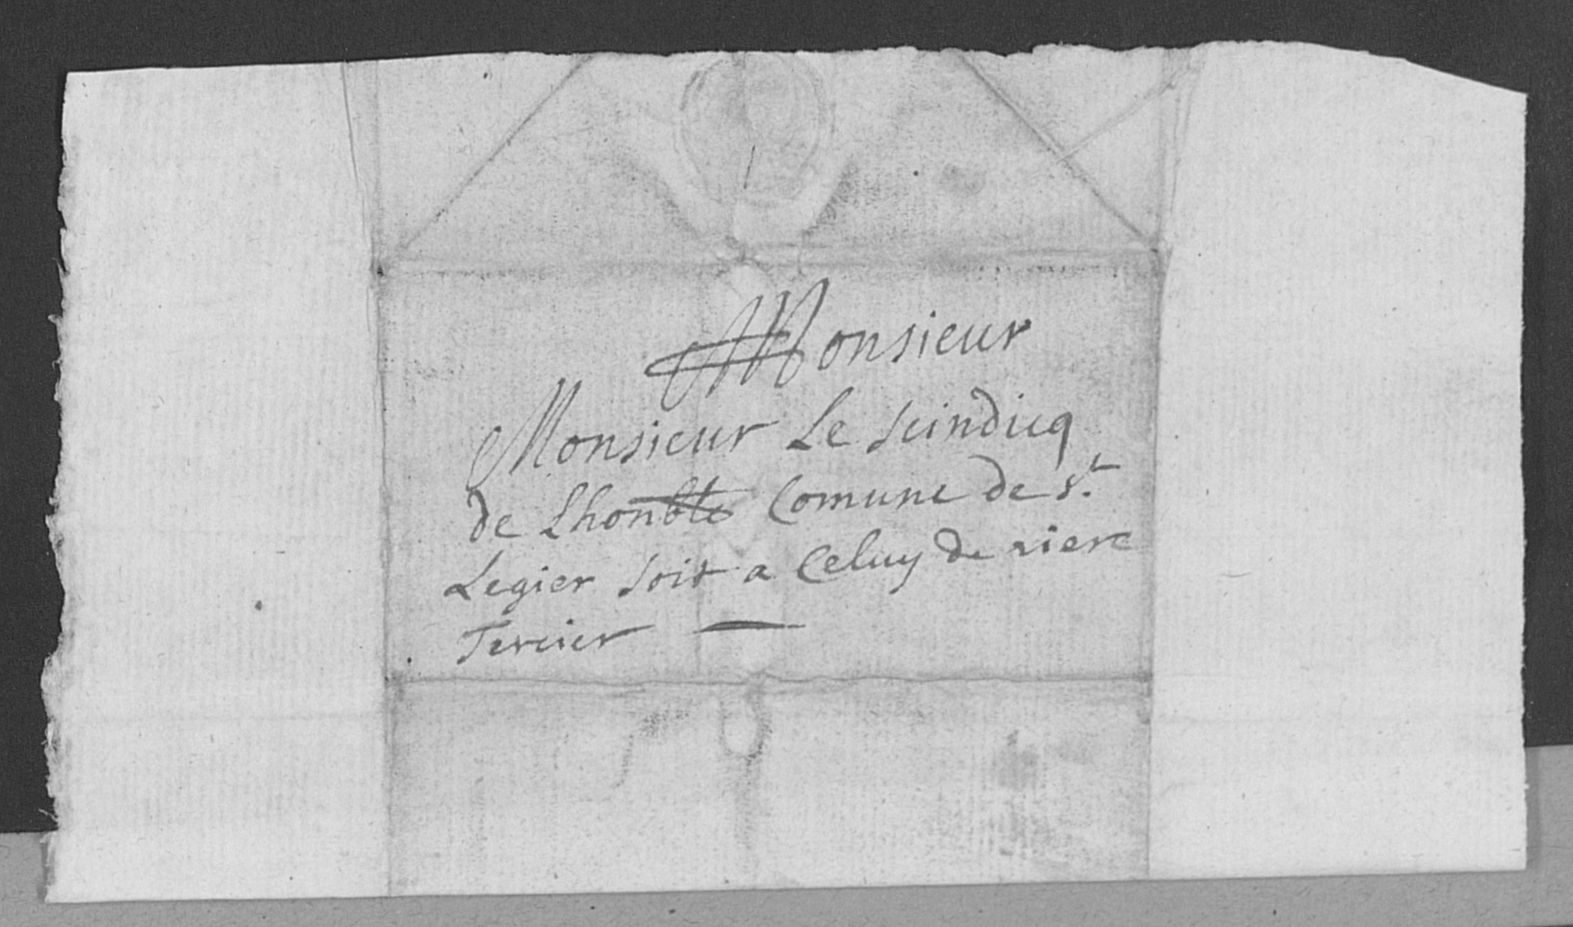 Monsieur
Monsieur Le scindicq
de Lhonble Comune de St
Legier soit a Celuy de riere
Tercier